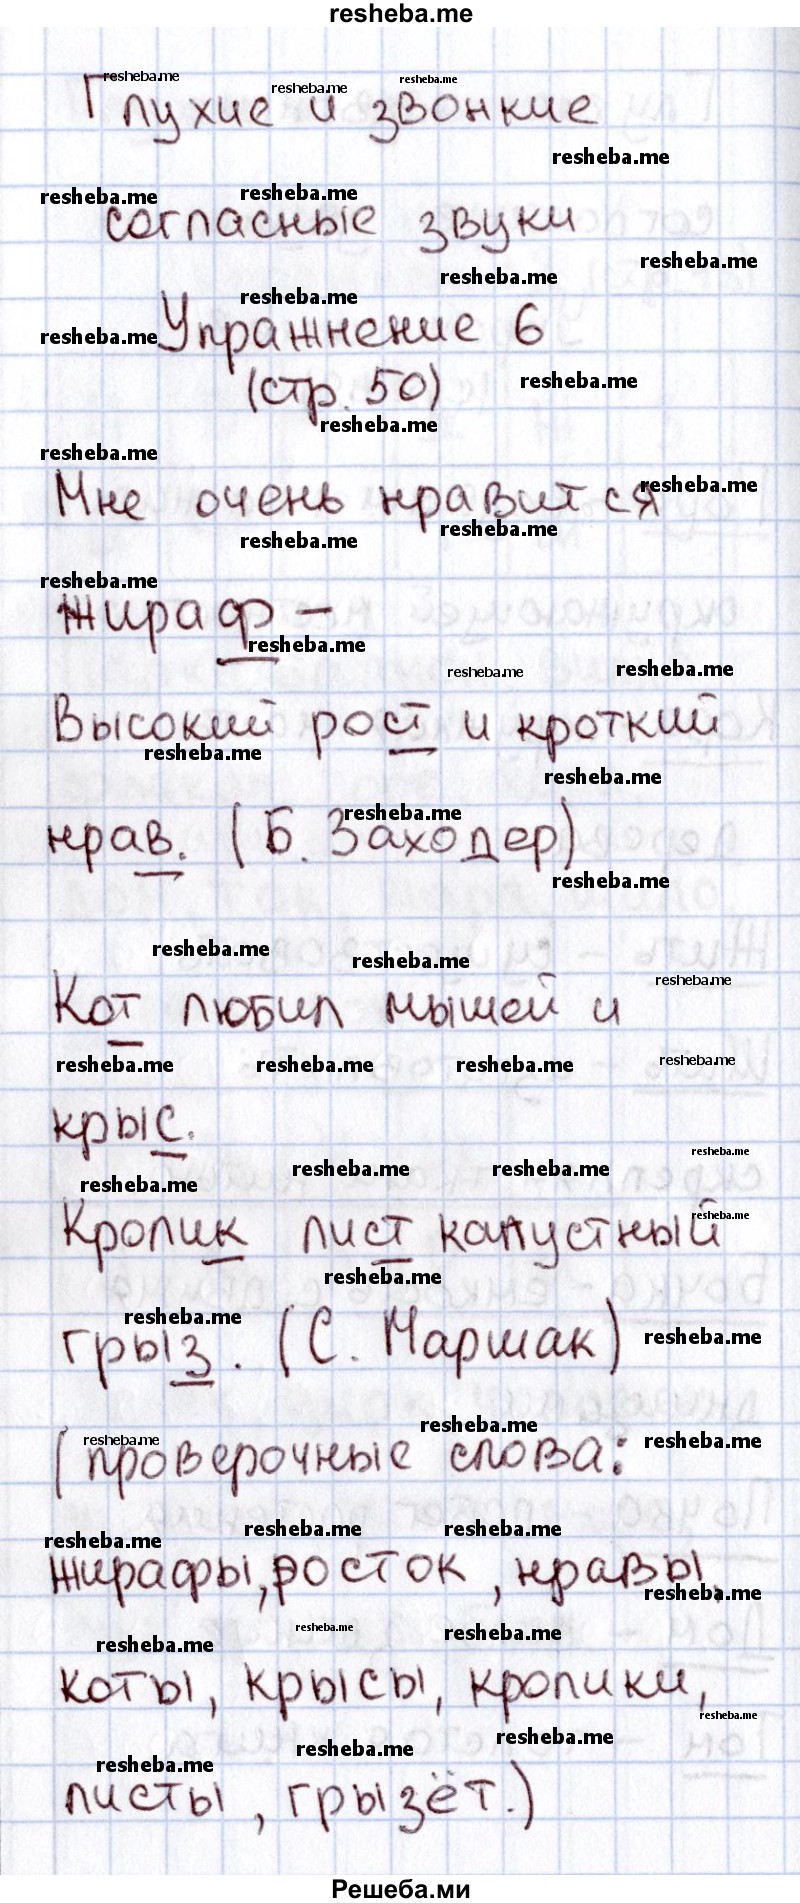 resheba.me
Глухие и звонкие
согласные звуки
Упражнение 6
(стр. 50)
Мне очень нравится
жираф –
Высокий рост и кроткий
нрав. (Б. Заходер)
Кот любил мышей и
крыс.
Кролик лист капустный
грыз. (С. Маршак)
(проверочные слова:
жирафы, росток, нравы,
коты, крысы, кролики,
листы, грызёт.)
Решеба.ми